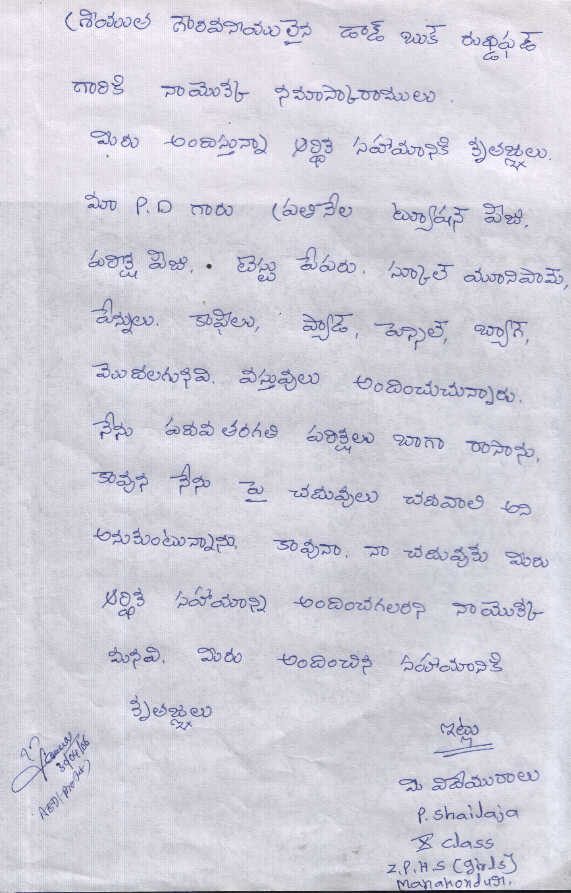 శ్రీయుత గౌరవనీయులైన డాడ్ బుక్
గారికి నా యొక్క నమాస్కారాములు
మీరు అందిస్తున్నా ఆర్థిక సహాయానికి కృతజ్ఞలు.
మా P.D గారు ప్రతినేల ట్యూషన్ ఫీజు,
పరిక్ష ఫీజు, టెస్టు పేపరు. స్కూల్ యూనిఫామ్,
పేన్నులు. కాఫిలు, ప్యాడ్, పెన్సాల్, బ్యాగ్,
మొదలగునవి. వస్తువులు అందించుచున్నారు.
నేను పదవ తరగతి పరిక్షలు బాగా రాసాను.
కావున నేను పై చదువులు చదవాలి అని
అనుకుంటున్నాను. కావునా, నా చదువుకు మీరు
ఆర్థిక సహాయాన్ని అందించగలరని నా యొక్క
మనవి. మీరు అందించిన సహాయానికి
కృతజ్ఞలు
ఇట్లు
మీ విదేయురాలు
P. Shailaja
X class
Z.P.H.S (girls)
30/04/06